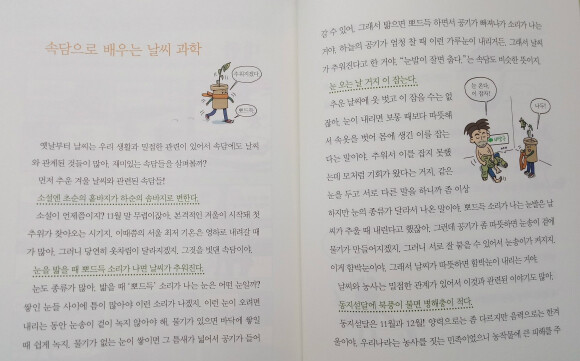 속담으로 배우는 날씨 과학
추워지겠다
뽀드득
옛날부터 날씨는 우리 생활과 밀접한 관련이 있어서 속담에도 날씨
와 관계된 것들이 많아. 재미있는 속담들을 살펴볼까?
먼저 추운 겨울 날씨와 관련된 속담들!
소설엔 초순의 홑바지가 하순의 솜바지로 변한다.
소설이 언제쯤이지? 11월 말 무렵이잖아. 본격적인 겨울이 시작돼 첫
추위가 찾아오는 시기지. 이때쯤의 서울 최저 기온은 영하로 내려갈 때
가 많아. 그러니 당연히 옷차림이 달라지겠지. 그것을 빗댄 속담이야.
눈을 밟을 때 뽀드득 소리가 나면 날씨가 추워진다.
눈도 종류가 많아. 밟을 때 '뽀드득' 소리가 나는 눈은 어떤 눈일까?
쌓인 눈들 사이에 틈이 많아야 이런 소리가 나겠지. 이런 눈이 오려면
내리는 동안 눈송이 겉이 녹지 않아야 해. 물기가 있으면 바닥에 쌓일
때 쉽게 녹지. 물기가 없는 눈이 쌓이면 그 틈새가 넓어서 공기가 들어
갈 수 있어. 그래서 밟으면 뽀드득 하면서 공기가 빠져나가 소리가 나는
거야. 하늘의 공기가 엄청 찰 때 이런 가루눈이 내리거든. 그래서 날씨
가 추워진다고 한 거야. "눈발이 잘면 춥다."는 속담도 비슷한 뜻이지.
눈 오는 날 거지 이 잡는다.
눈 온다,
이 잡자!
나두!
추운 날씨에 옷 벗고 이 잡을 수는 없
잖아. 눈이 내리면 보통 때보다 따뜻해
서 속옷을 벗어 몸에 생긴 이를 잡는
다는 말이야. 추워서 이를 잡지 못했
는데 모처럼 기회가 왔다는 거지. 같은
눈을 두고 서로 다른 말을 하니까 좀 이상
하지만 눈의 종류가 달라서 나온 말이야. 뽀드득 소리가 나는 눈발은 날
씨가 추울 때 내린다고 했잖아. 그런데 공기가 좀 따뜻하면 눈송이 겉에
물기가 만들어지겠지. 그러니 서로 잘 붙을 수 있어서 눈송이가 커지지.
이게 함박눈이야. 그래서 날씨가 따뜻하면 함박눈이 내리는 거야.
날씨와 농사는 밀접한 관계가 있어서 이것과 관련된 이야기도 많아.
동지섣달에 북풍이 불면 병해충이 적다.
동지섣달은 11월과 12월! 양력으로는 좀 다르지만 음력으로는 한겨
울이야. 우리나라는 농사를 짓는 민족이었으니 농작물에 큰 피해를 주